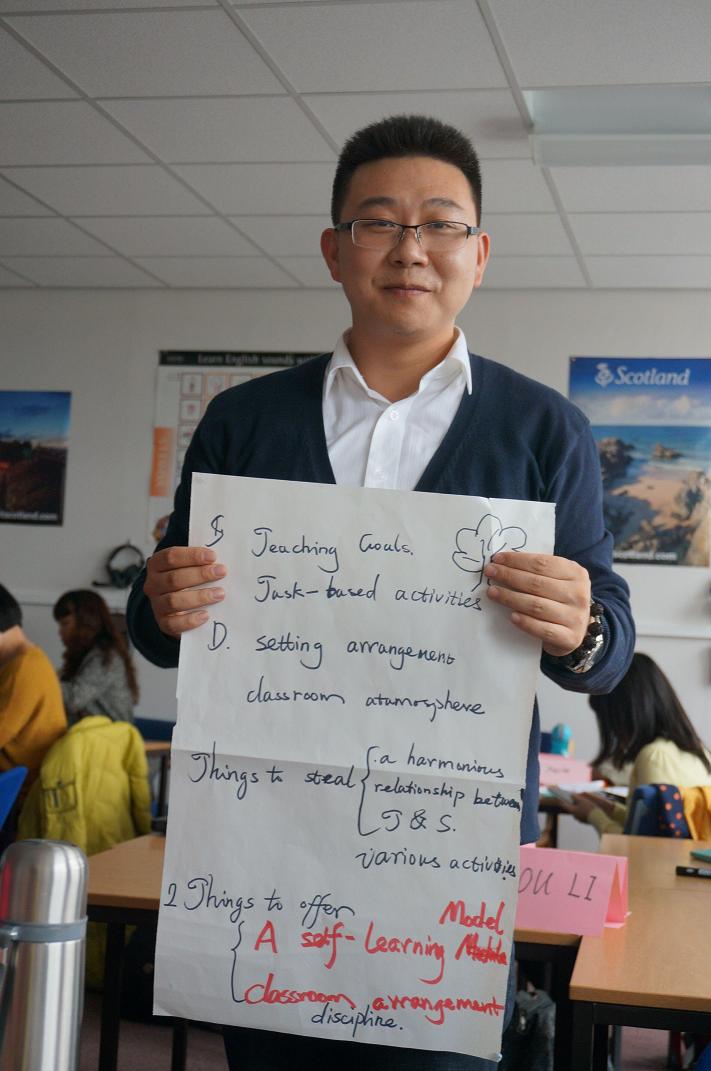 Learn English sounds
Scotland
S Teaching Goals.
Task-based activities
D. setting arrangement
classroom atamosphere
Things to steal
a harmonious
relationship between
T & S.
various activities
2 Things to offer
Model
A self-Learning
classroom arrangement
discipline.
OU LI